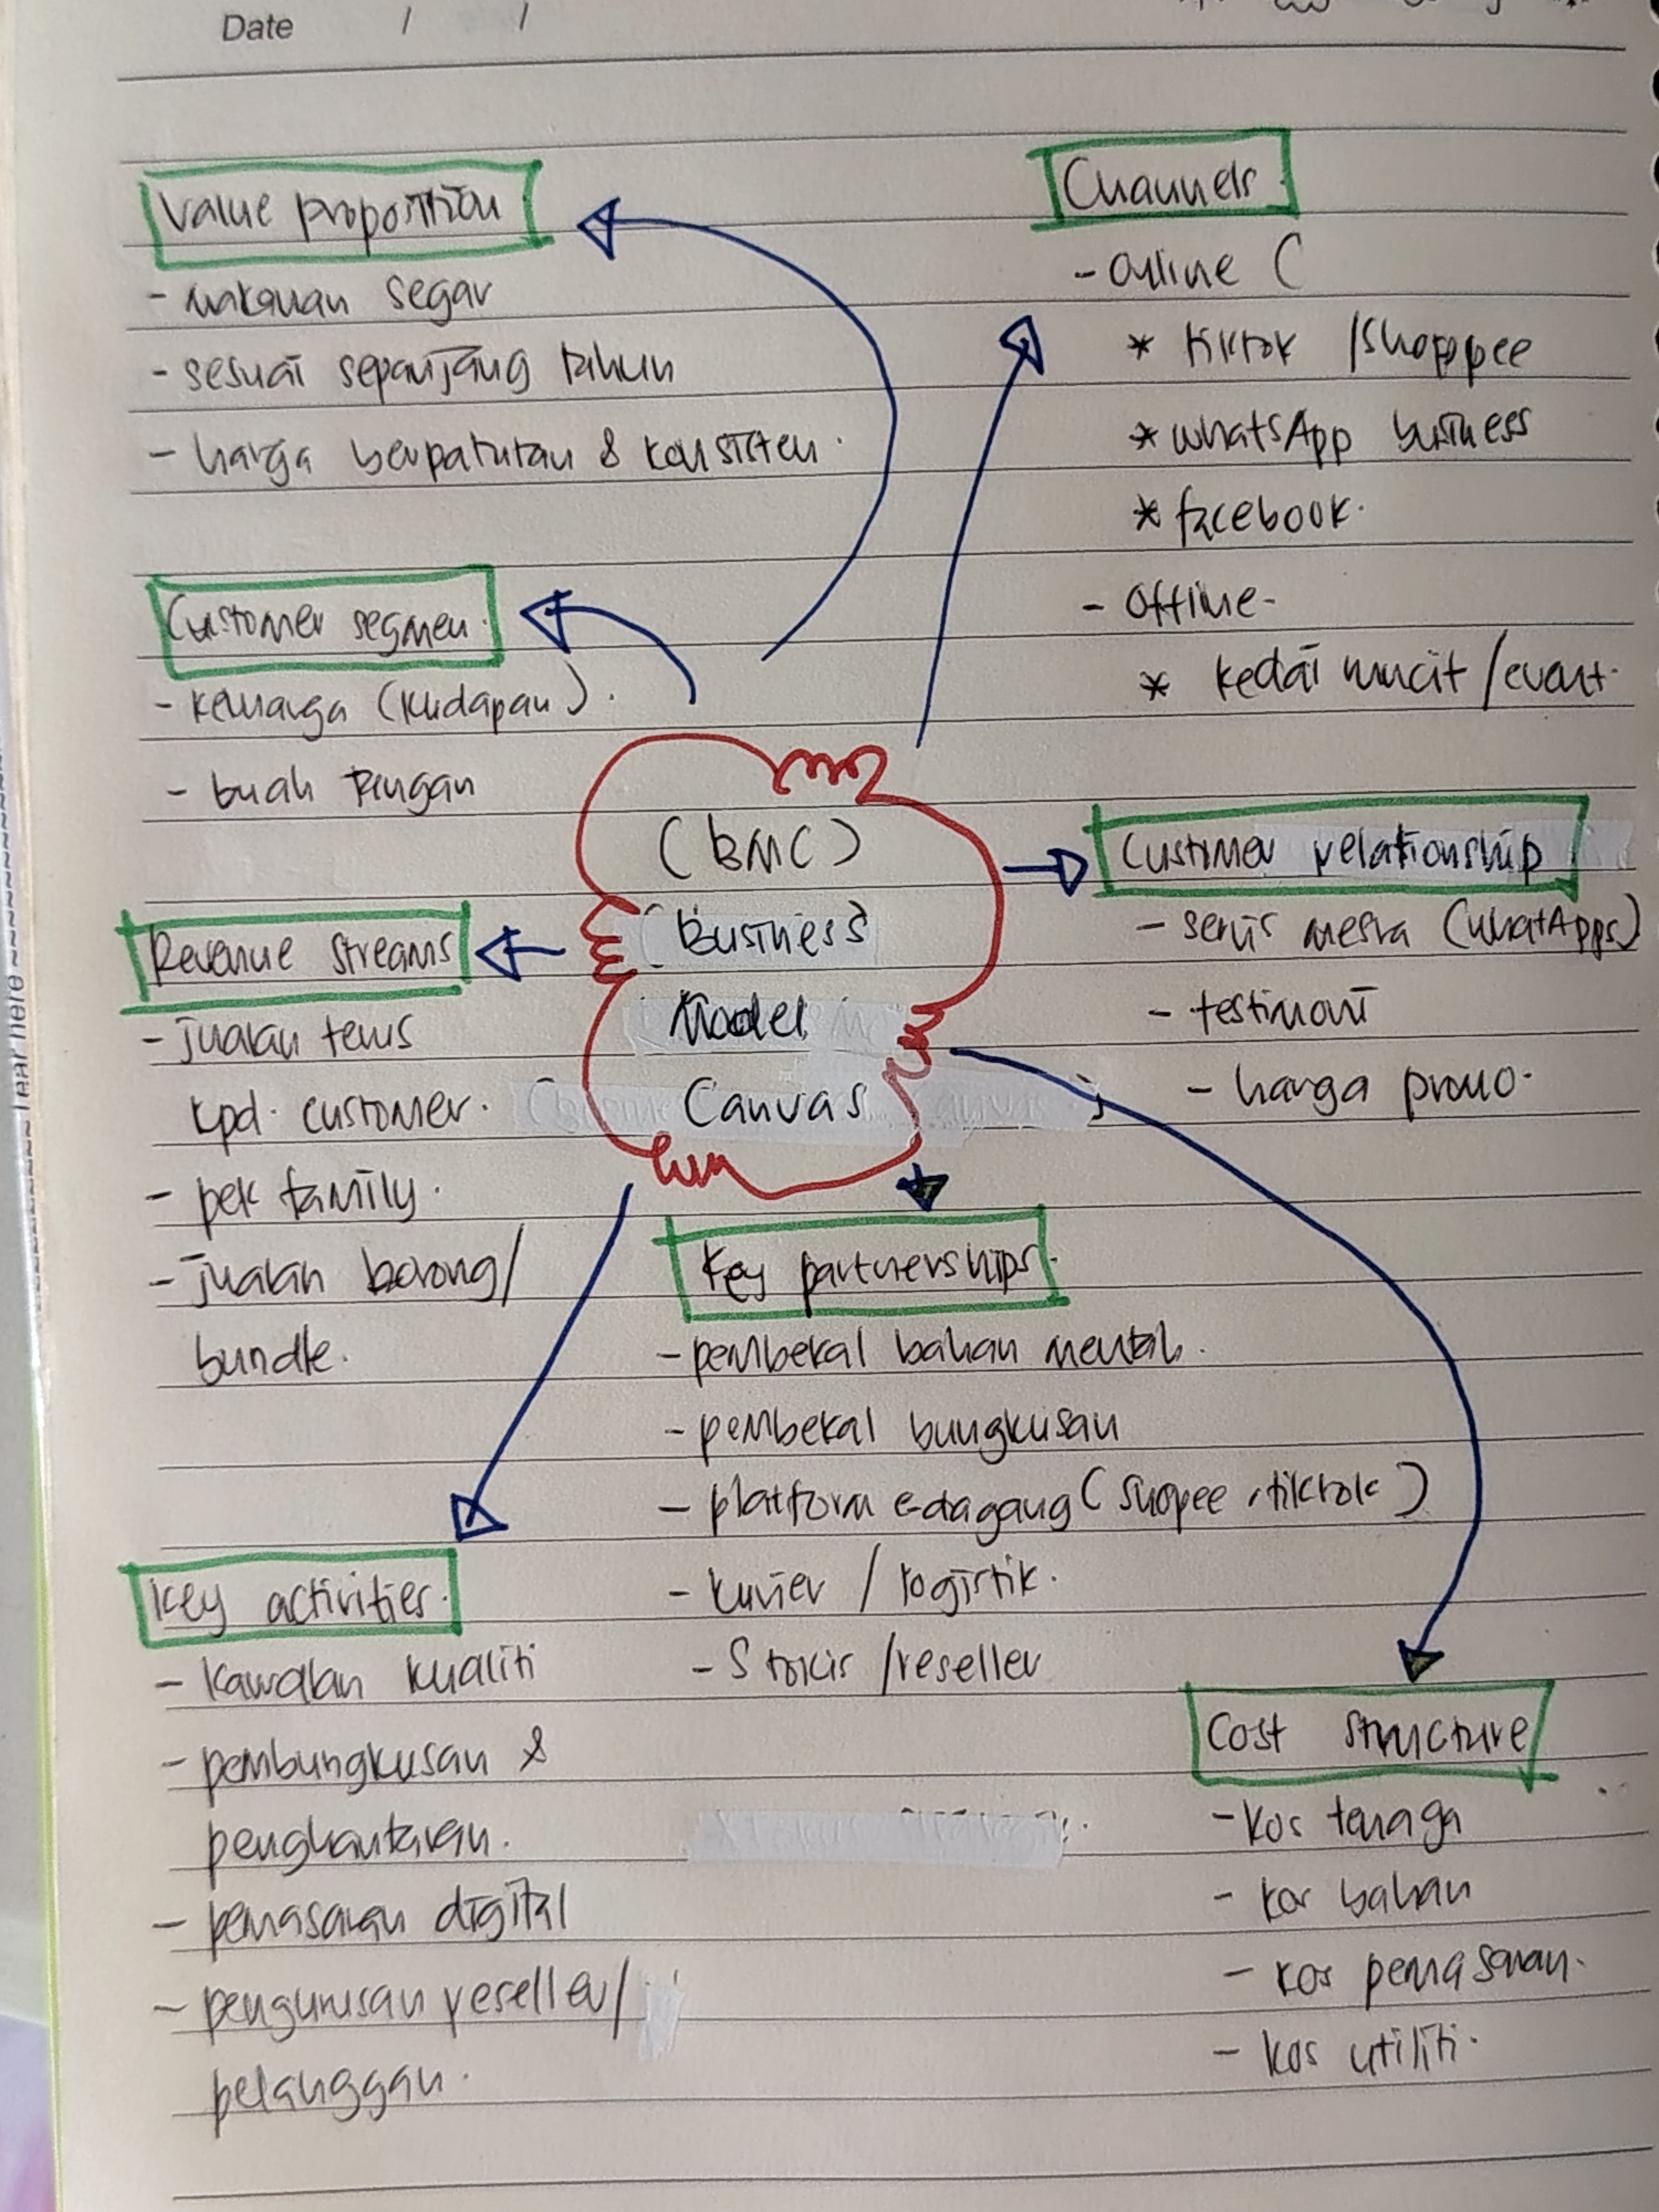 Date / /
Value proposition
- makanan segar
- sesuai sepanjang tahun
- harga berpatutan & konsisten.
Channels.
- online (
* tiktok / Shoppee
* whatsApp business
* facebook.
- Offline -
* kedai runcit / event.
Customer segmen.
- keluarga (kudapan).
- buah tangan
(BMC)
(Business)
Model
Canvas
Customer relationship
- servis mesra (whatApps)
- testimoni
- harga promo.
Revenue streams
- jualan terus
kpd. customer.
- pek family.
- jualan borong/
bundle.
Key partnerships.
- pembekal bahan mentah.
- pembekal bungkusan
- platform e-dagang (Shopee, tiktok)
- kurier / logistik.
- Stokis / reseller
Key activities.
- kawalan kualiti
- pembungkusan &
penghantaran.
- pemasaran digital
- pengurusan reseller/
pelanggan.
Cost structure
- kos tenaga
- kos bahan
- kos pemasaran.
- kos utiliti.
Tear here